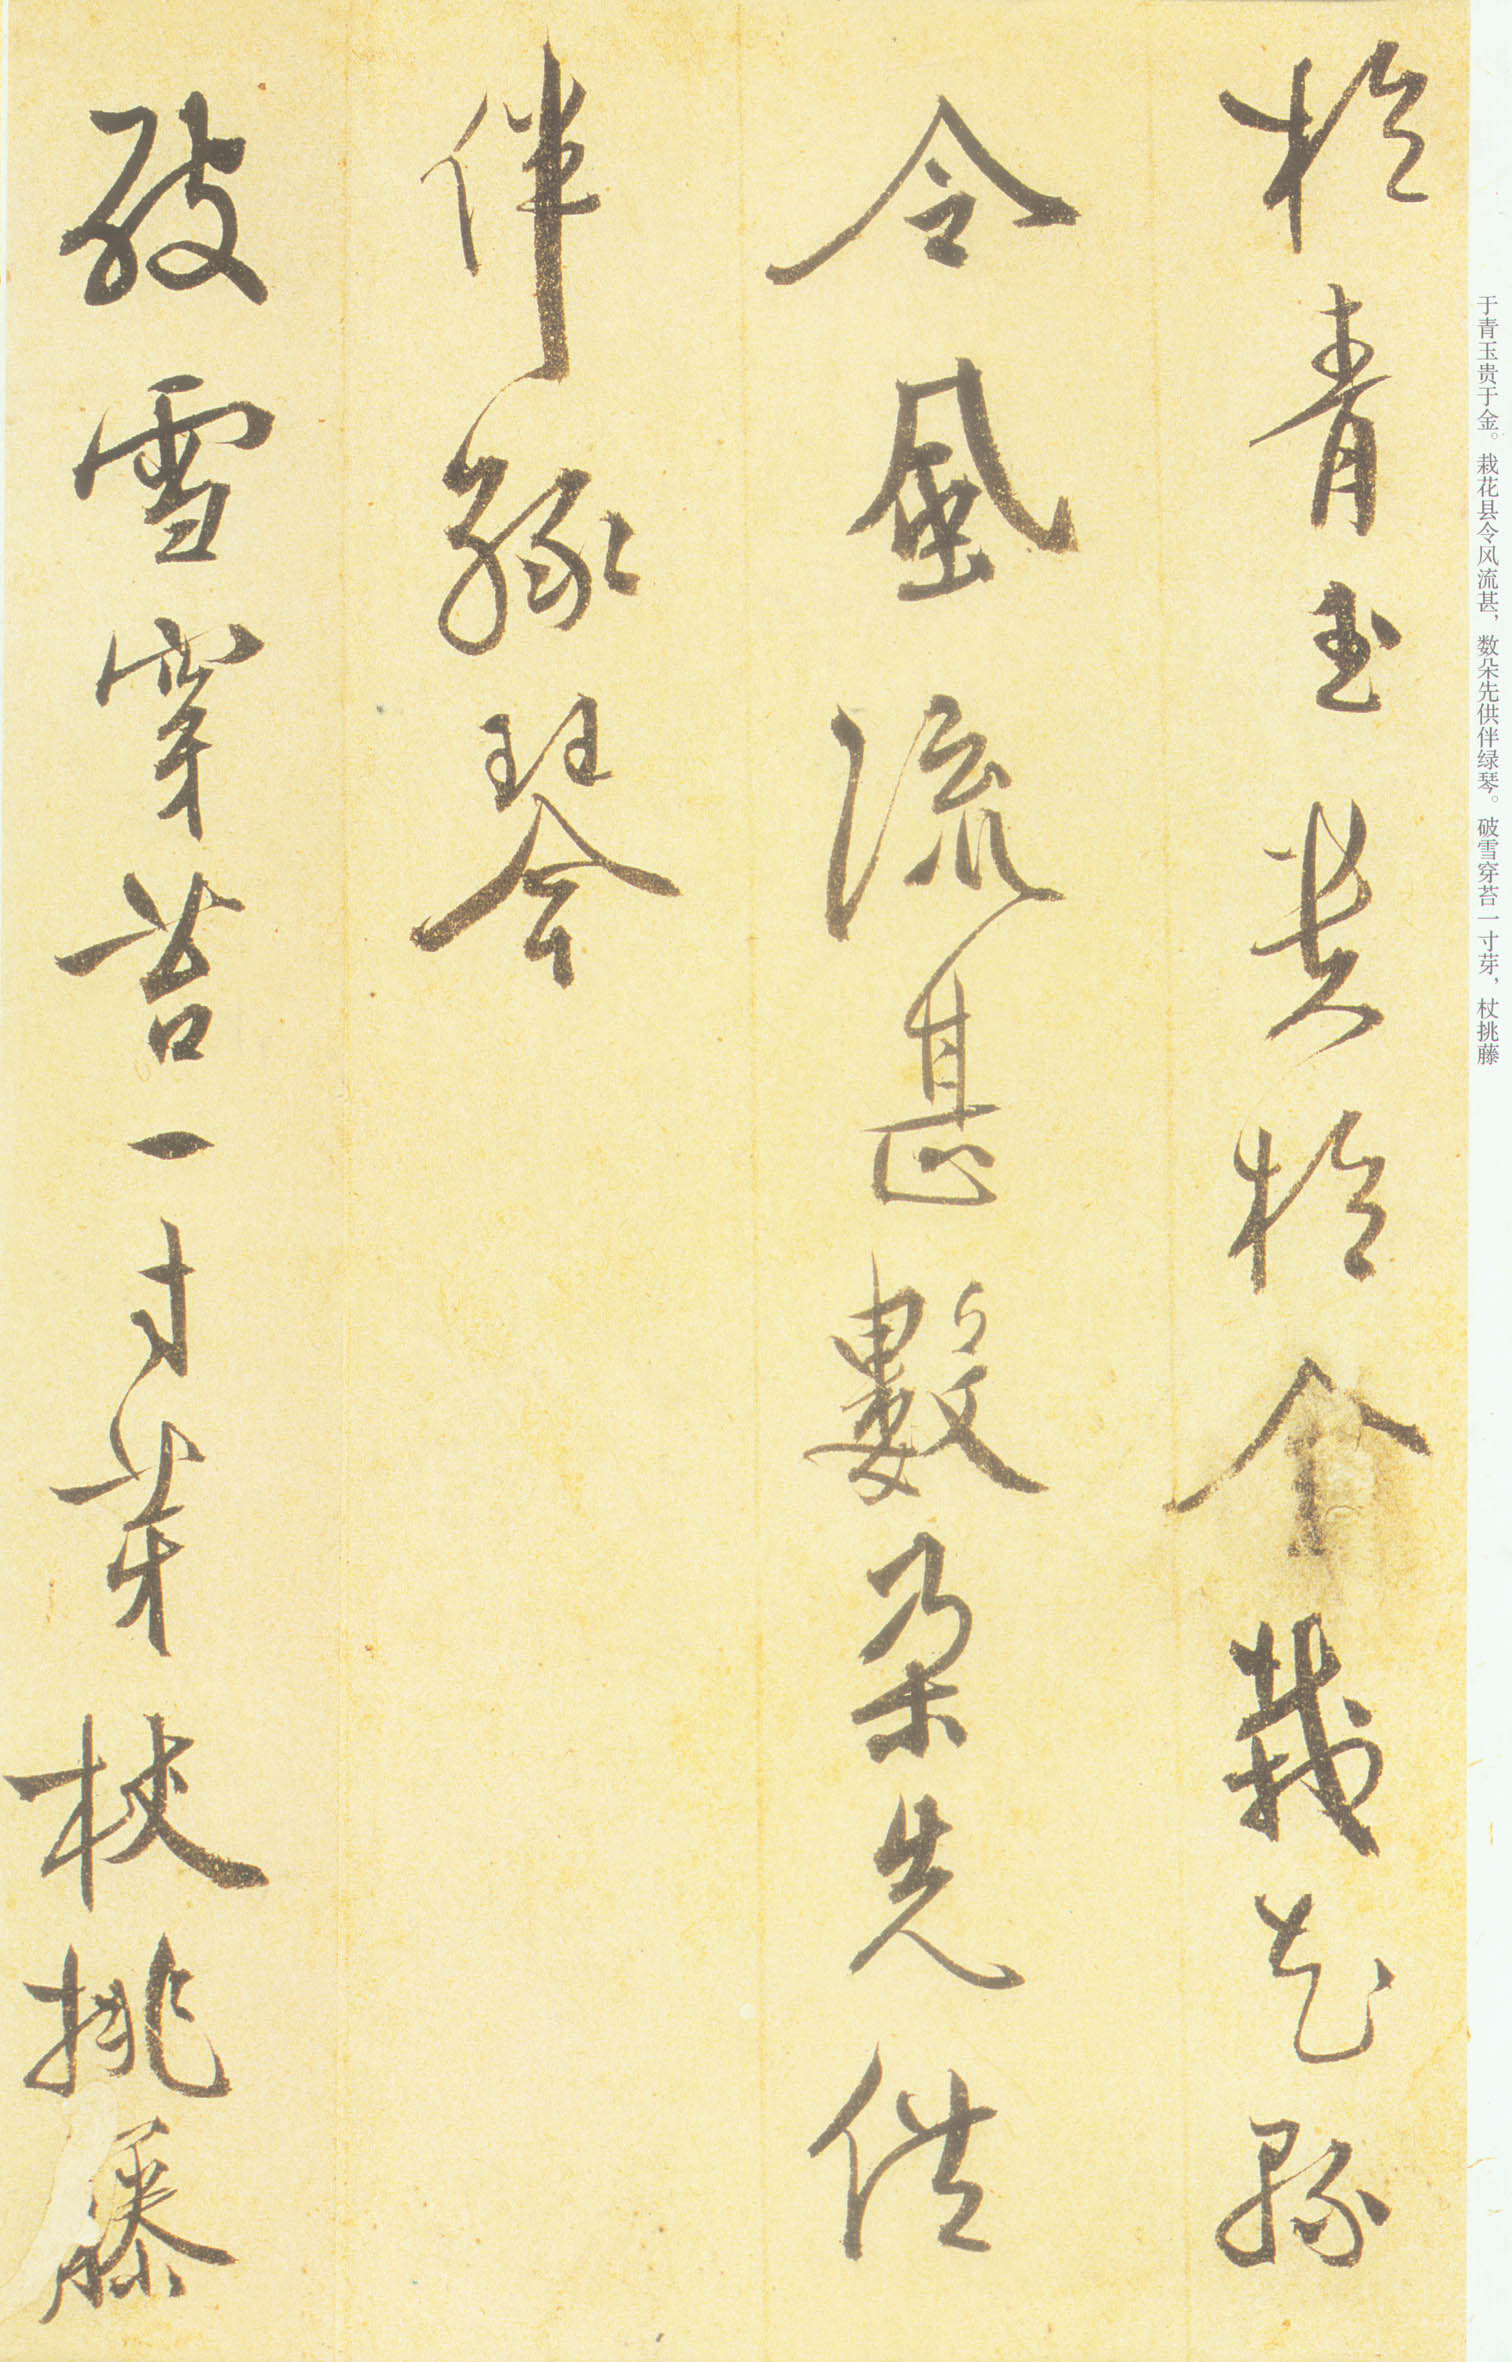 于青玉贵于金。栽花县令风流甚，数朵先供伴绿琴。破雪穿苔一寸芽，杖挑藤
於青玉貴於金栽花縣
令風流甚數朵先供
伴綠琴
破雪穿苔一寸芽杖挑藤